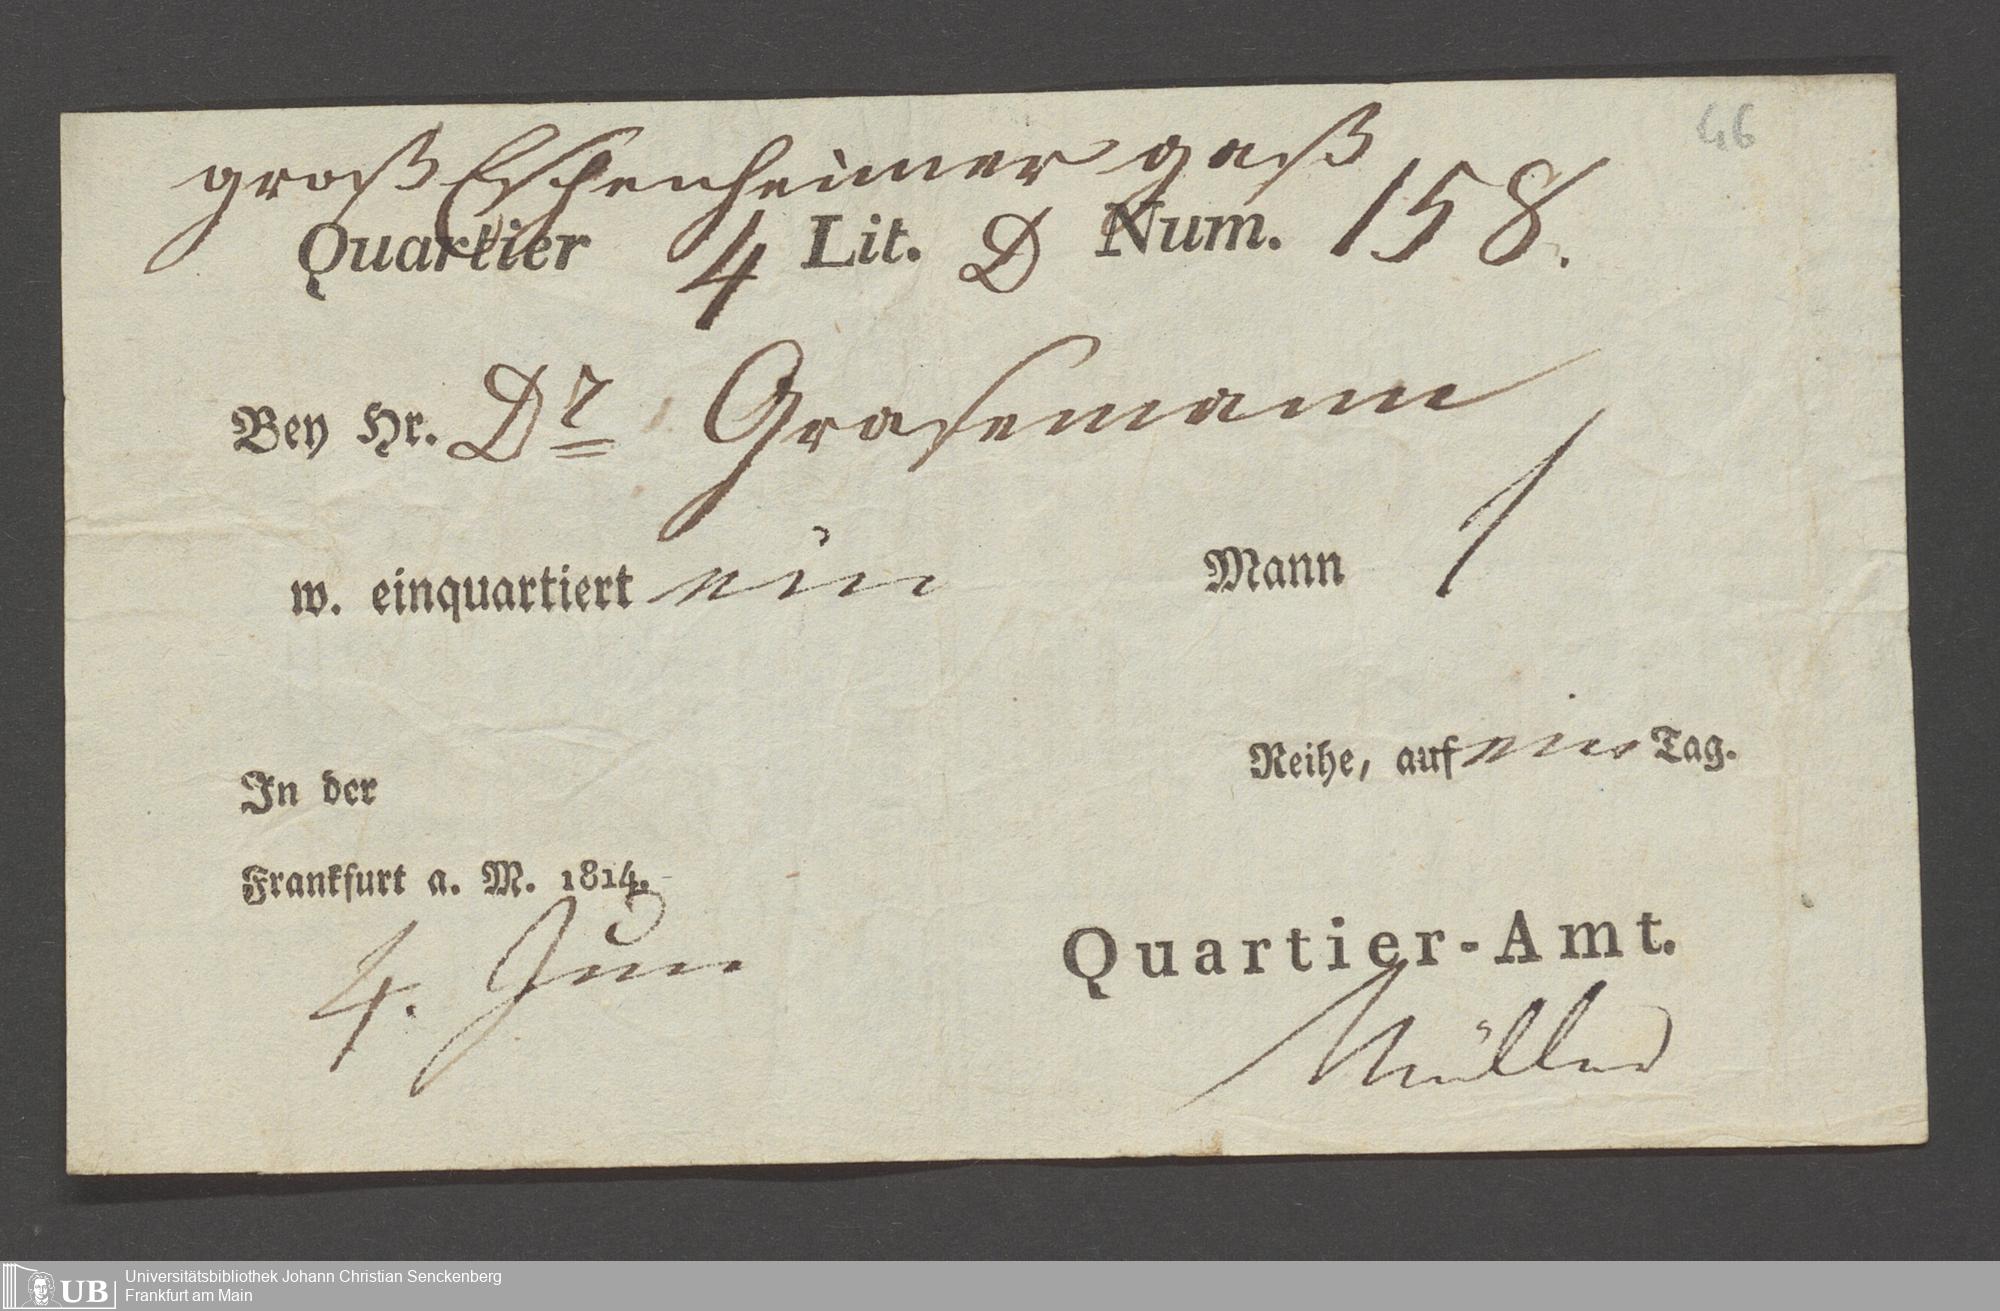 46
groß Eschenheimer gaß
Quartier 4 Lit. D Num. 158.
Bey Hr. Dr Grasemann
w. einquartiert ein Mann 1
Reihe, auf ein Tag.
In der
Frankfurt a. M. 1814.
4. Jun
Quartier-Amt.
Müller
UB Universitätsbibliothek Johann Christian Senckenberg
Frankfurt am Main